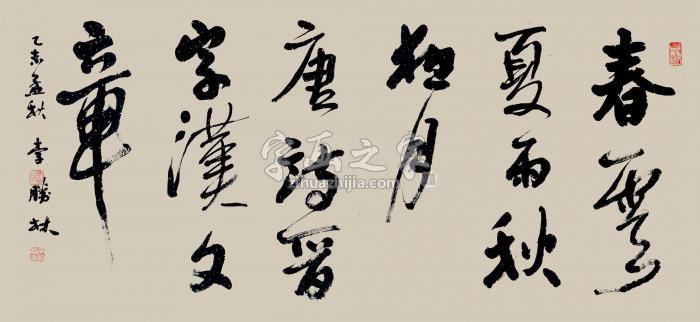 春雲
夏雨秋
夜月
唐詩晉
字漢文
章
乙未孟秋 李勝林
字画之家
zihuazhijia.com